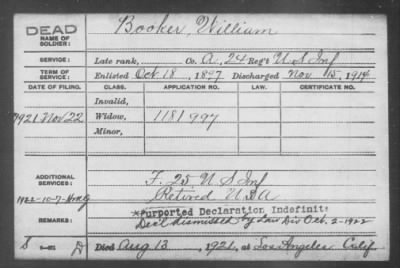 DEAD
NAME OF SOLDIER: Booker, William
SERVICE: Late rank, Co. A, 24 Reg't U S Inf
TERM OF SERVICE: Enlisted Oct 18, 1897 Discharged Nov 15, 1914
DATE OF FILING. CLASS. APPLICATION NO. LAW. CERTIFICATE NO.
Invalid,
1921 Nov 22 Widow, 1181997
Minor,
ADDITIONAL SERVICES: F. 25 U S Inf
1922-10-7- Retired U S A
*Purported Declaration Indefinite
REMARKS: Decl dismissed by Law Div Oct. 2-1922
S D Died Aug 13, 1921, at Los Angeles Calif